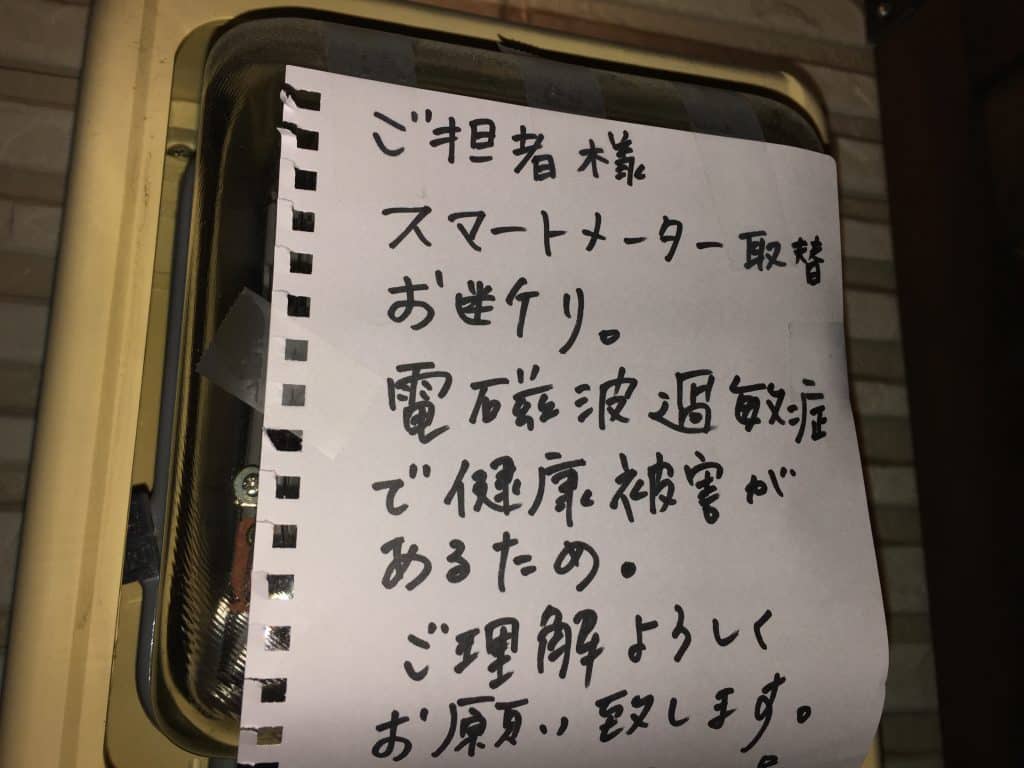 ご担者様
スマートメーター取替
お断り。
電磁波過敏症
で健康被害が
あるため。
ご理解よろしく
お願い致します。